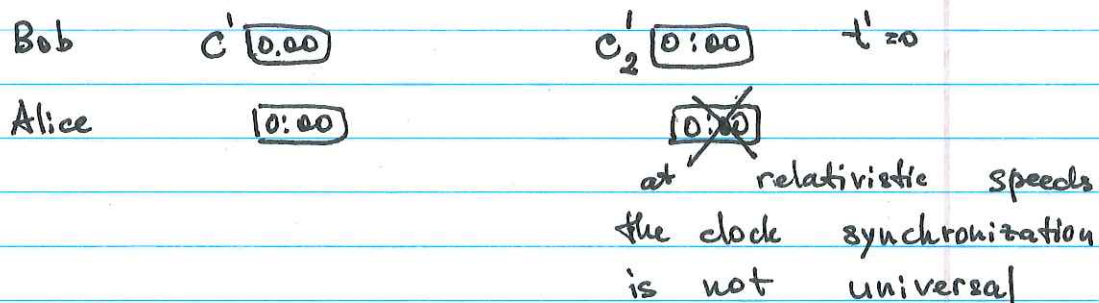 Bob C' 0.00 C'2 0:00 t'=0
Alice 0:00 0:00
at relativistic speeds
the clock synchronization
is not universal